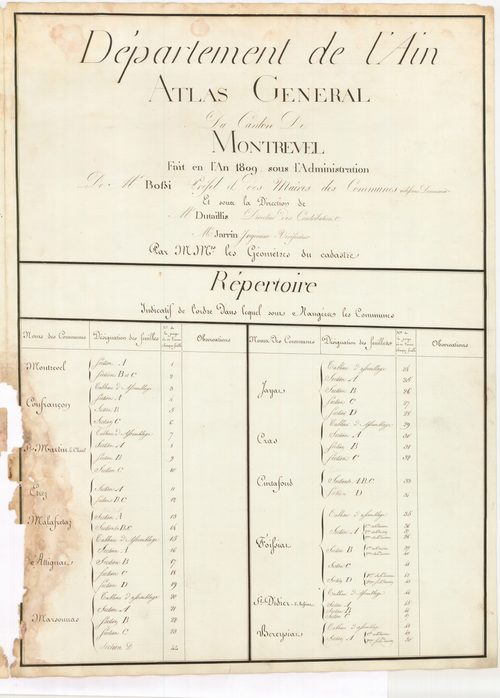 Département de l'Ain
ATLAS GENERAL
Du Canton De
MONTREVEL
Fait en l'An 1809 sous l'Administration
De Mr Bossi Préfet et des Maires des Communes
Et sous la Direction de
Mr Dutaillis Directeur des Contributions
Mr Jarrin Ingénieur Vérificateur
Par MMrs les Géometres du cadastre
Répertoire
Indicatif de l'ordre Dans lequel sont Rangées les Communes
Noms des Communes Désignation des feuilles Nos de Observations
Montrevel
Section A 1
Sections B et C 2
Confrançon
Tableau d'Assemblage 3
Section A 4
Section B 5
Section C 6
St Martin le Chatel
Tableau d'Assemblage 7
Section A 8
Section B 9
Section C 10
Section A 11
Section B.C. 12
Malafretaz
Section A 13
Sections B.C. 14
Attignat
Tableau d'Assemblage 15
Section A 16
Section B 17
Section C 18
Section D 19
Marsonnas
Tableau d'Assemblage 20
Section A 21
Section B 22
Section C 23
Section D
Noms des Communes Désignation des feuilles Nos de Observations
Jayat
Tableau d'assemblage 24
Section A 25
Section B 26
Section C 27
Section D 28
Cras
Tableau d'Assemblage 29
Section A 30
Section B 31
Section C 32
Curtafond
Sections A.B.C. 33
Section D 34
Foissiat
Tableau d'assemblage 35
Section A
Section B
Section C 41
Section D
St Didier
Tableau d'Assemblage 44
Section A 45
Section B 46
Section C
Bereyziat
Tableau d'Assemblage
Section A